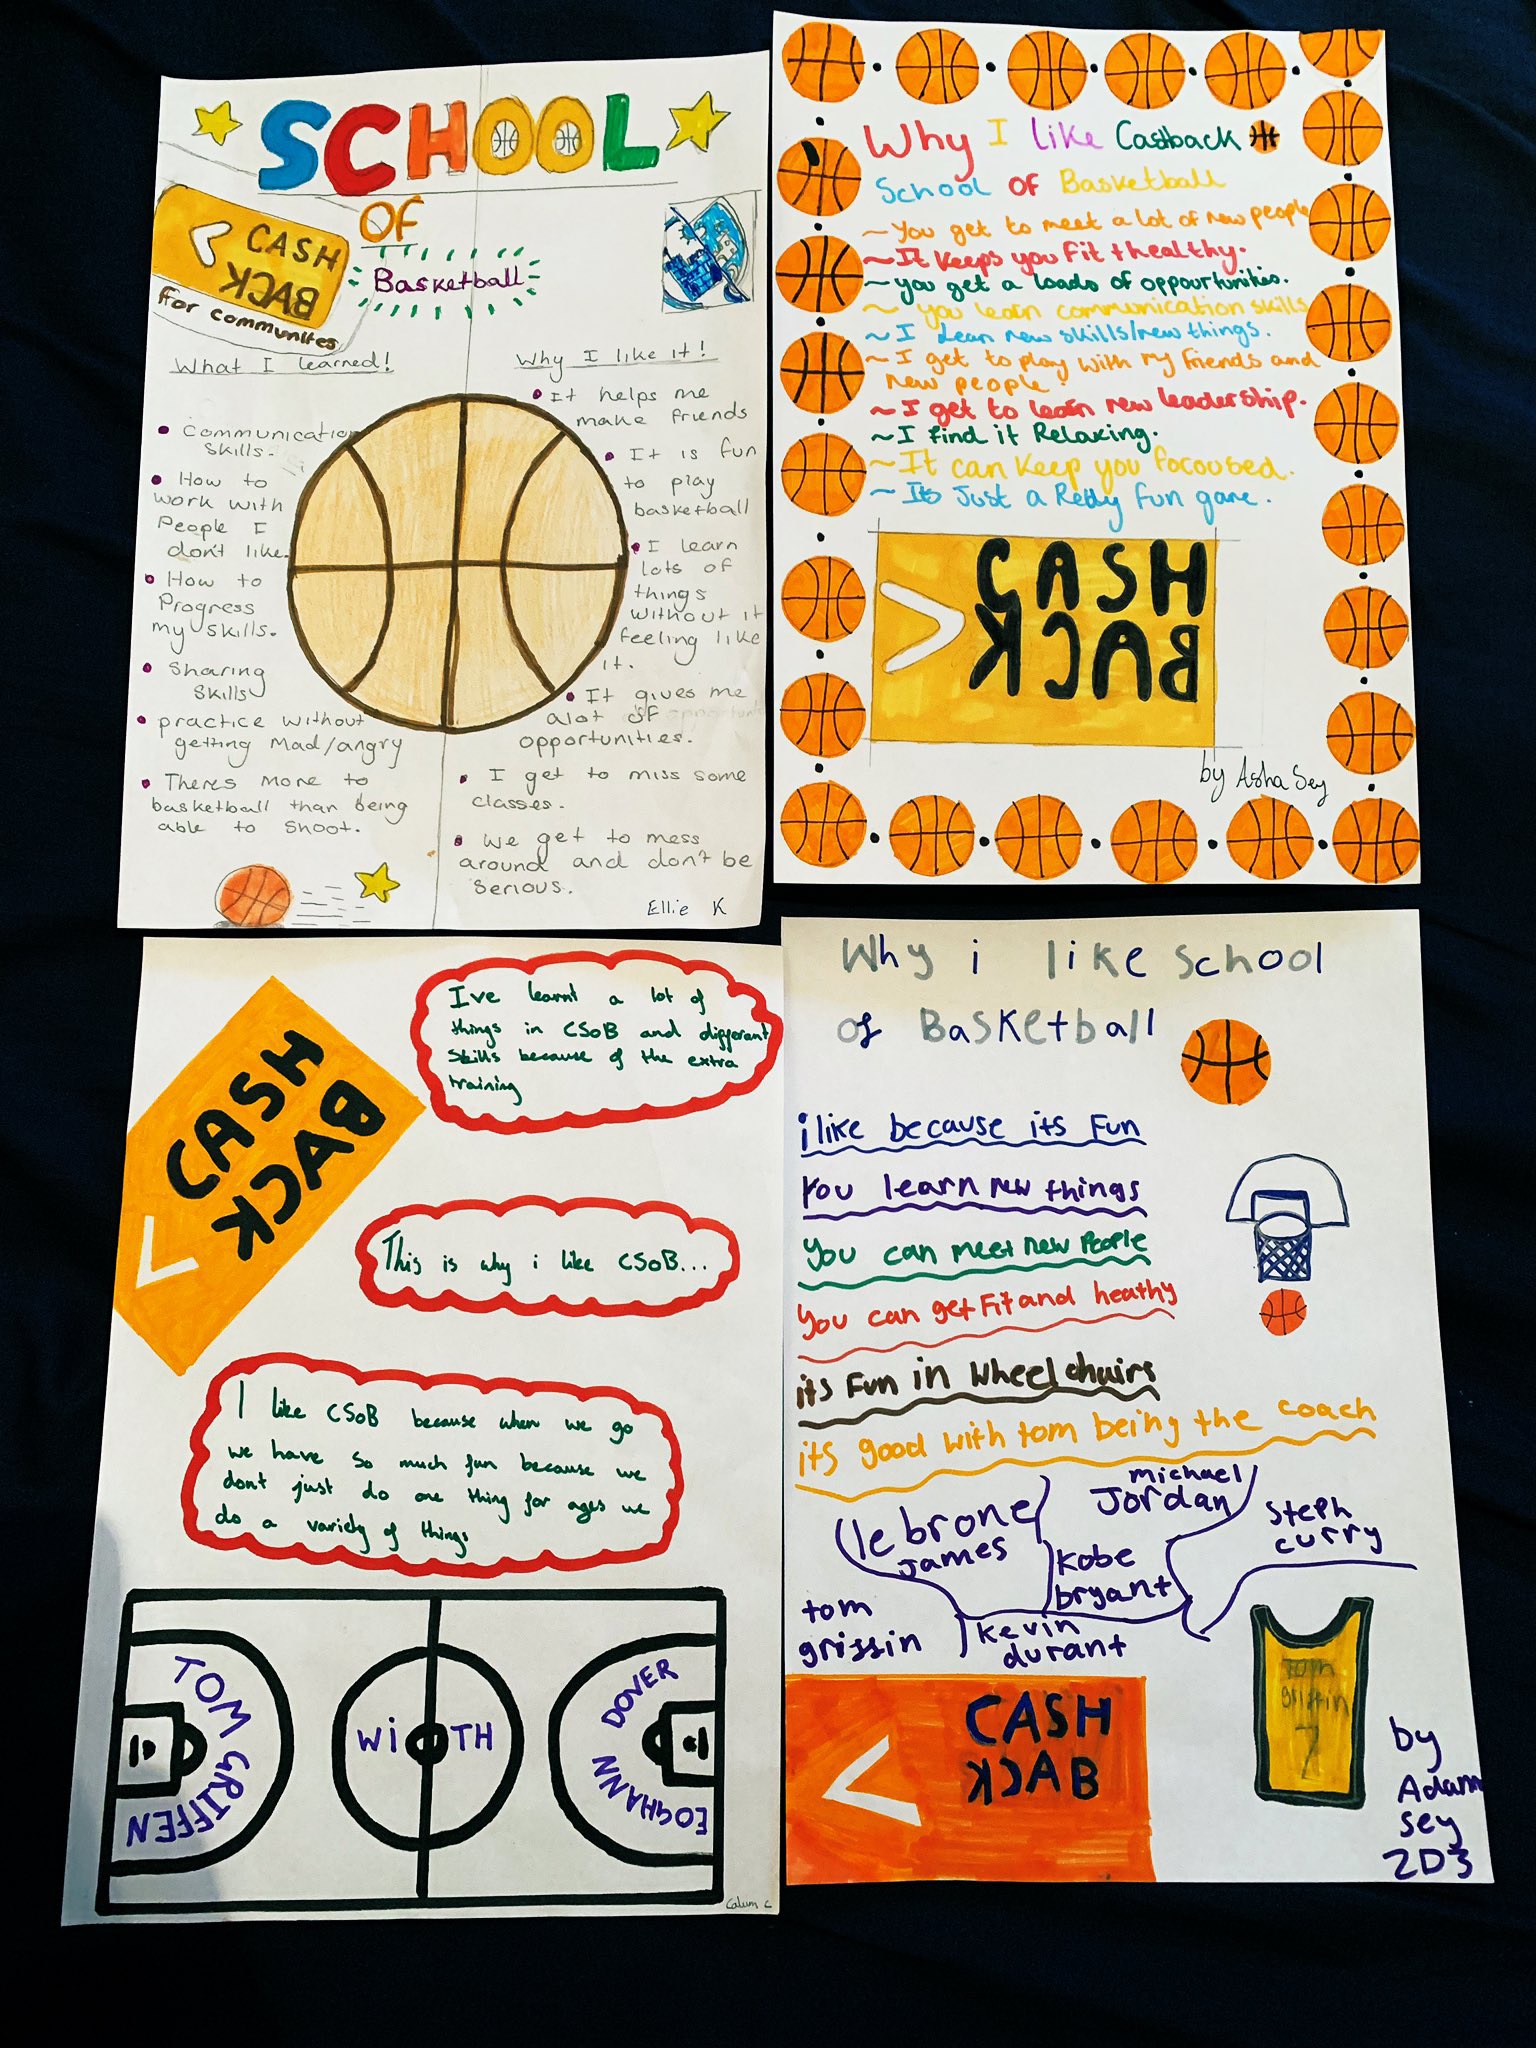 SCHOOL
OF
Basketball
CASH
BACK
For communites
What I learned!
• Communication
skills.
• How to
work with
People I
don't like.
• How to
Progress
my skills.
• Sharing
skills
• practice without
getting Mad/angry
• Theres more to
basketball than being
able to shoot.
Why I like it!
• It helps me
make friends
• It is fun
to play
basketball
• I learn
lots of
things
without it
feeling like
it.
• It gives me
alot of
opportunities.
• I get to miss some
classes.
• We get to mess
around and don't be
serious.
Ellie K
Why I like Casback
School OF Basketball
~ You get to meet a lot of new people
~ It keeps you fit + healthy.
~ you get a loads of oppourtunities.
~ you learn communication skills
~ I learn new skills/new things.
~ I get to play with my friends and
new people.
~ I get to learn new leadership.
~ I find it Relaxing.
~ It can keep you focoused.
~ Its Just a Really fun game.
CASH
BACK
by Asha Sey
CASH
BACK
I've learnt a lot of
things in CSoB and different
skills because of the extra
training
This is why i like CSoB...
I like CSoB because when we go
we have so much fun because we
don't just do one thing for ages we
do a variety of things
TOM GRIFFEN
WiTH
EOGHANN DOVER
Calum C
Why i like school
of Basketball
i like because its Fun
You learn new things
You can meet new People
You can get Fit and heathy
its Fun in Wheelchairs
its good with tom being the coach
lebrone
james
michael
Jordan
steph
curry
kobe
bryant
tom
grissin
kevin
durant
CASH
BACK
Tom
Griffin
7
by
Adam
sey
2D3